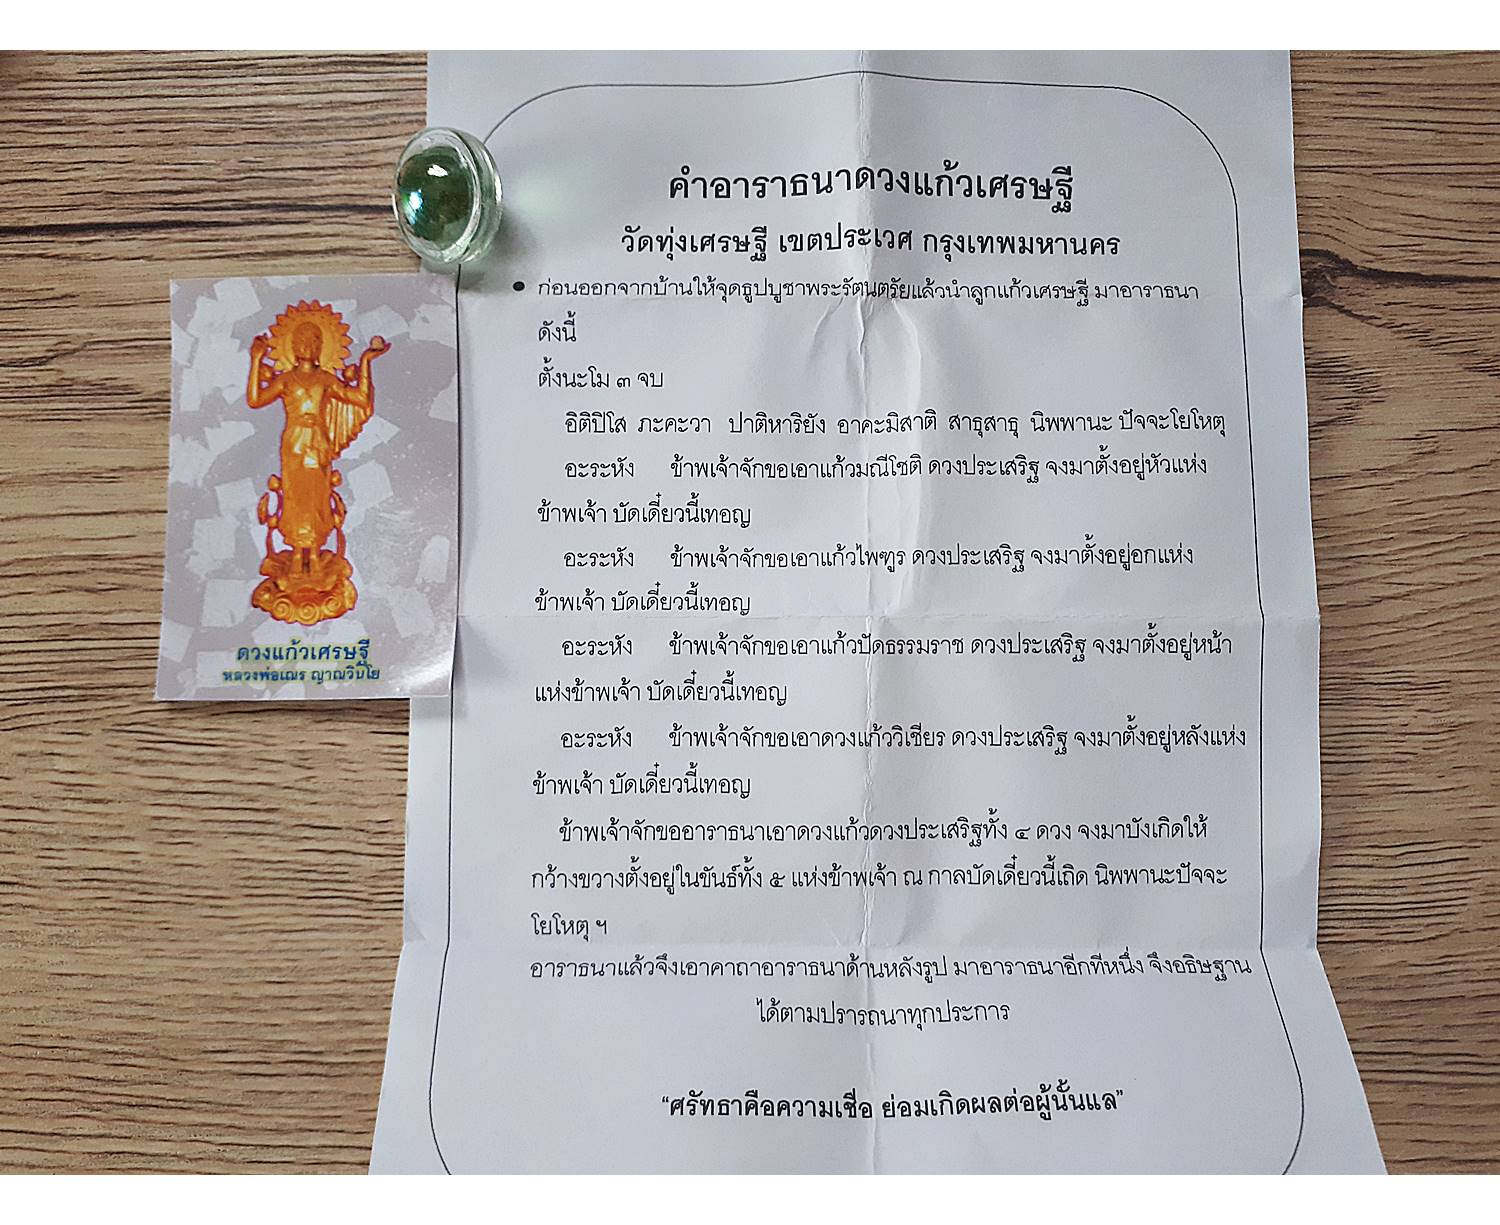 คำอาราธนาดวงแก้วเศรษฐี
วัดทุ่งเศรษฐี เขตประเวศ กรุงเทพมหานคร
• ก่อนออกจากบ้านให้จุดธูปบูชาพระรัตนตรัยแล้วนำลูกแก้วเศรษฐี มาอาราธนา
ดังนี้
ตั้งนะโม ๓ จบ
อิติปิโส ภะคะวา ปาติหาริยัง อาคะมิสาติ สาธุสาธุ นิพพานะ ปัจจะโยโหตุ
อะระหัง ข้าพเจ้าจักขอเอาแก้วมณีโชติ ดวงประเสริฐ จงมาตั้งอยู่หัวแห่ง
ข้าพเจ้า บัดเดี๋ยวนี้เทอญ
อะระหัง ข้าพเจ้าจักขอเอาแก้วไพฑูร ดวงประเสริฐ จงมาตั้งอยู่อกแห่ง
ข้าพเจ้า บัดเดี๋ยวนี้เทอญ
อะระหัง ข้าพเจ้าจักขอเอาแก้วปัดธรรมราช ดวงประเสริฐ จงมาตั้งอยู่หน้า
แห่งข้าพเจ้า บัดเดี๋ยวนี้เทอญ
อะระหัง ข้าพเจ้าจักขอเอาดวงแก้ววิเชียร ดวงประเสริฐ จงมาตั้งอยู่หลังแห่ง
ข้าพเจ้า บัดเดี๋ยวนี้เทอญ
ข้าพเจ้าจักขออาราธนาเอาดวงแก้วดวงประเสริฐทั้ง ๔ ดวง จงมาบังเกิดให้
กว้างขวางตั้งอยู่ในขันธ์ทั้ง ๕ แห่งข้าพเจ้า ณ กาลบัดเดี๋ยวนี้เถิด นิพพานะปัจจะ
โยโหตุ ฯ
อาราธนาแล้วจึงเอาคาถาอาราธนาด้านหลังรูป มาอาราธนาอีกทีหนึ่ง จึงอธิษฐาน
ได้ตามปรารถนาทุกประการ
“ศรัทธาคือความเชื่อ ย่อมเกิดผลต่อผู้นั้นแล”
ดวงแก้วเศรษฐี
หลวงพ่อเณร ญาณวินโย